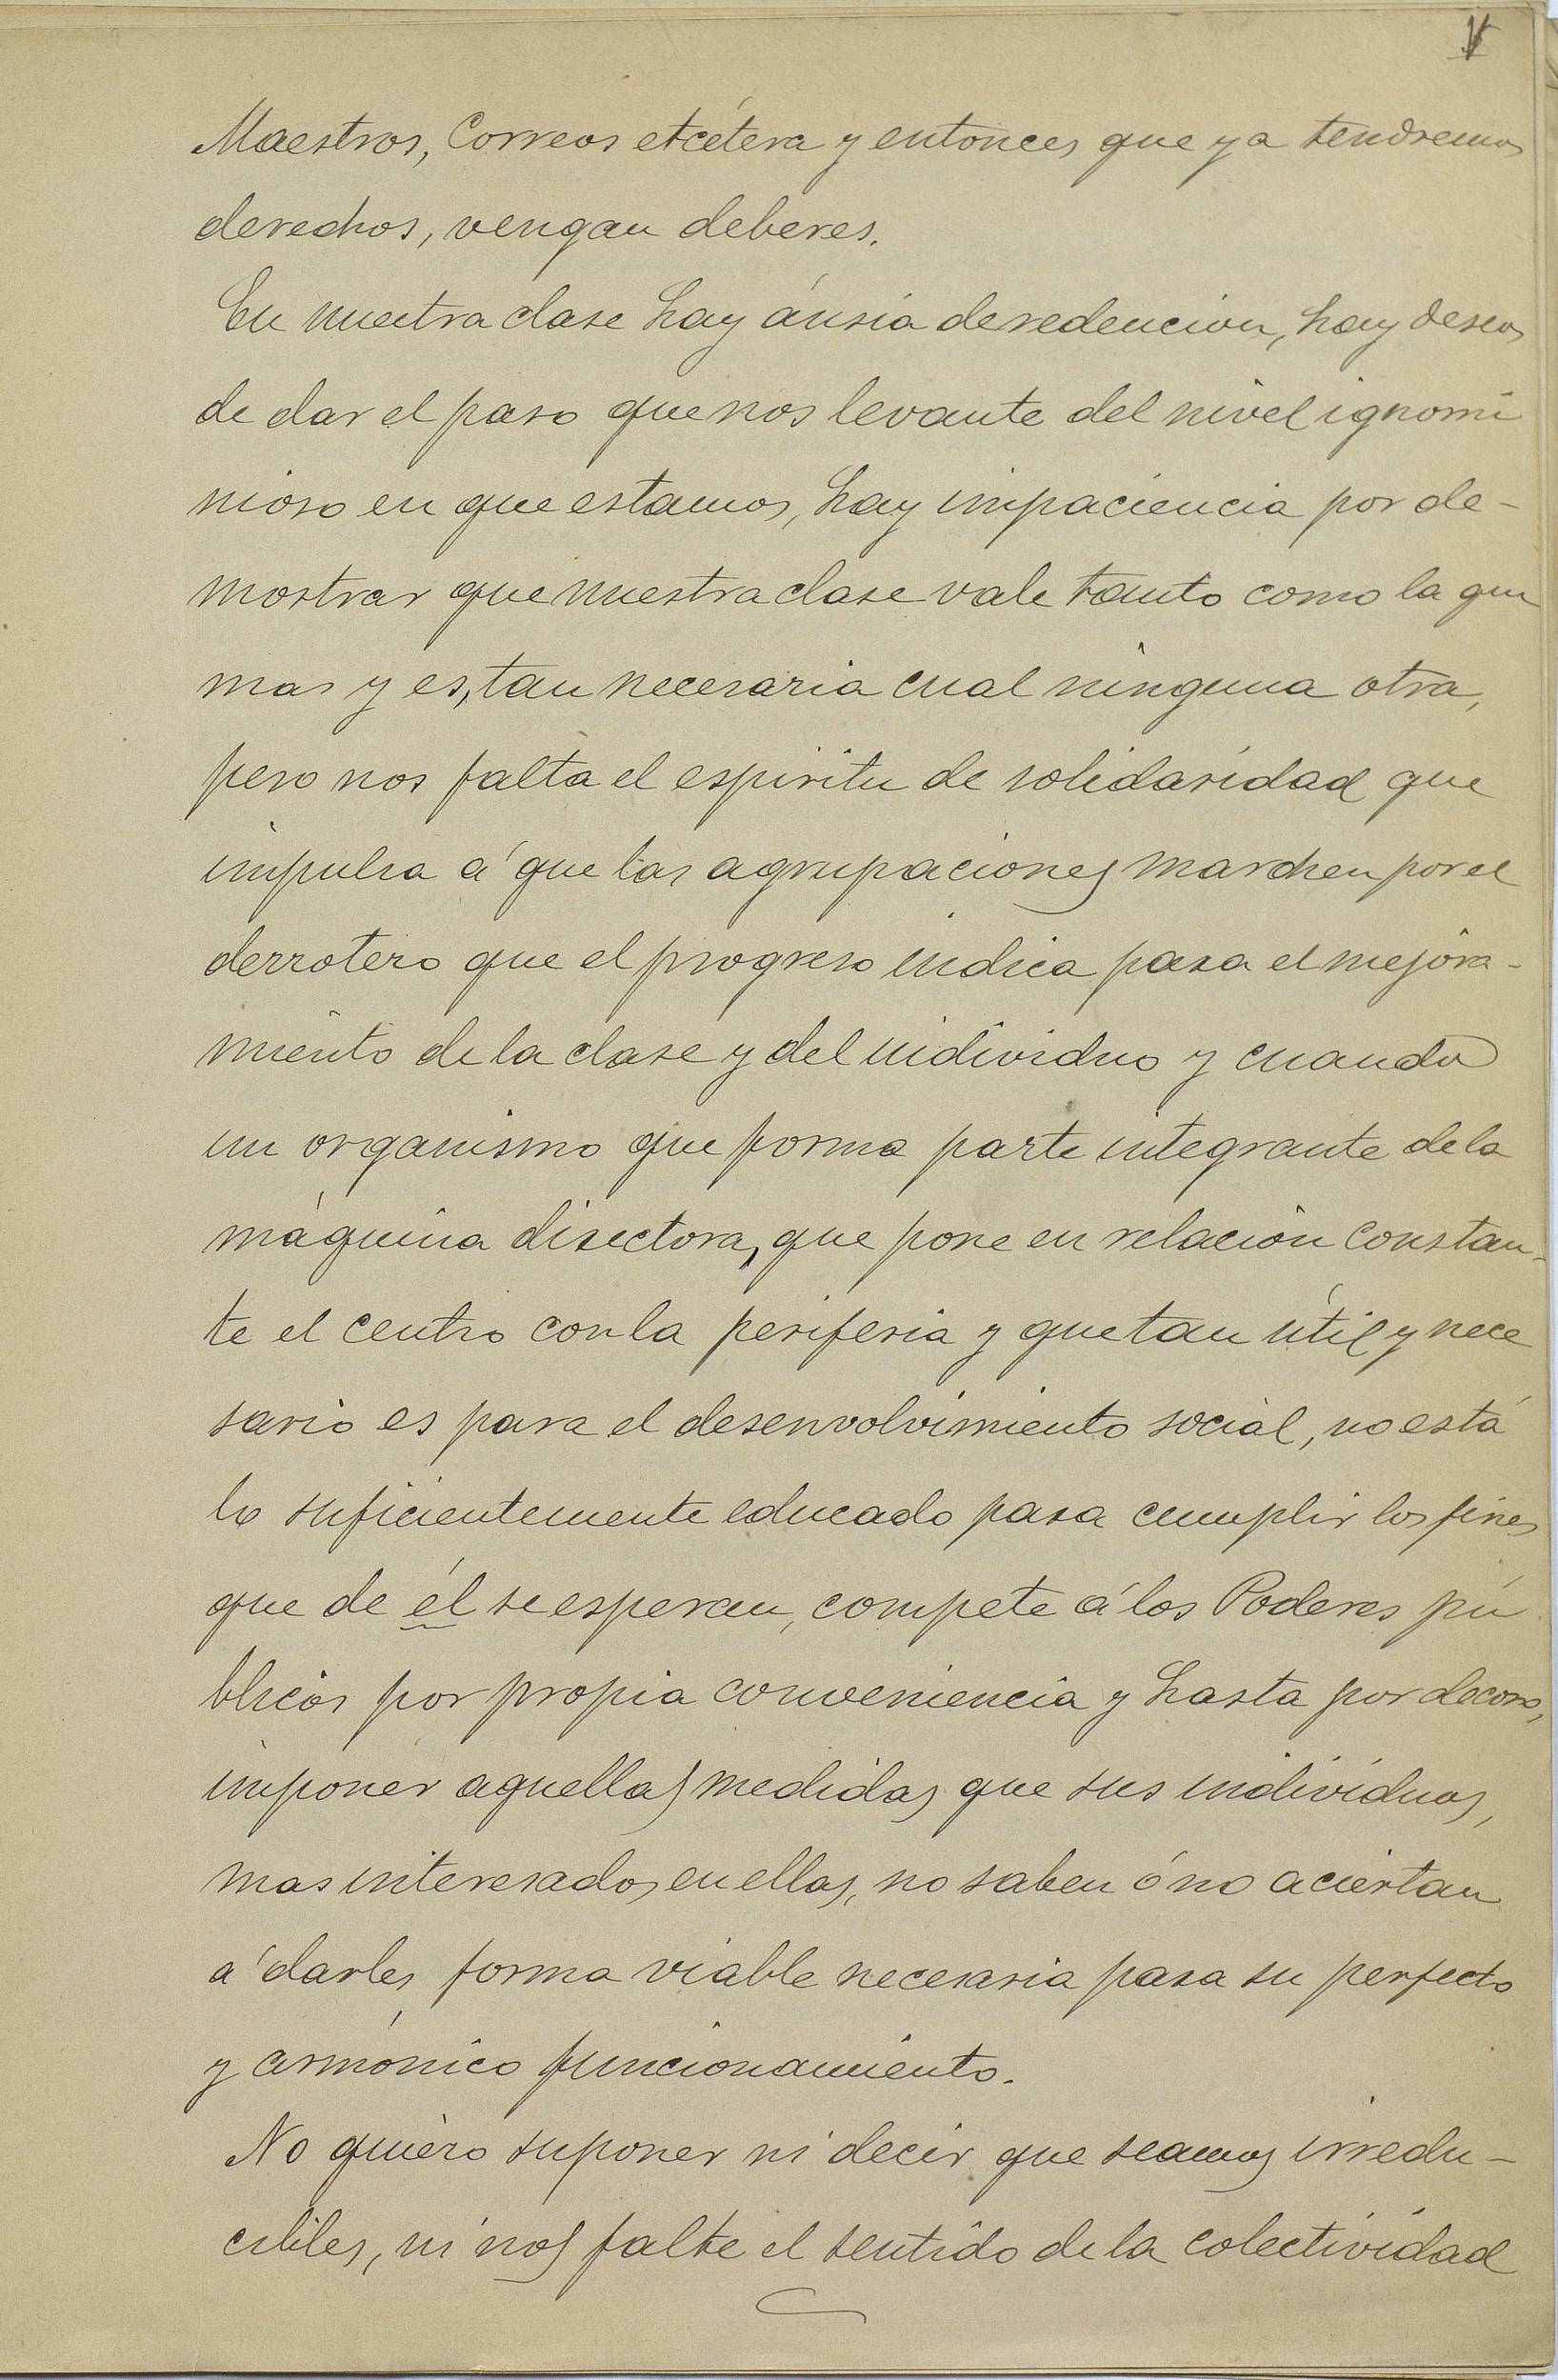 V
Maestros, Correos etcétera y entonces que ya tendremos
derechos, vengan deberes.
En nuestra clase hay ánsia de redencion, hay deseos
de dar el paso que nos levante del nivel ignomi
nioso en que estamos, hay impaciencia por de-
mostrar que nuestra clase vale tanto como la que
mas y es, tan necesaria cual ninguna otra,
pero nos falta el espiritu de solidaridad que
impulsa á que las agrupaciones marchen por el
derrotero que el progreso indica para el mejora-
miento de la clase y del individuo y cuando
un organismo que forma parte integrante de la
máquina directora, que pone en relacion constan-
te el centro con la periferia y que tan útil y nece
sario es para el desenvolvimiento social, no está
lo suficientemente educado para cumplir los fines
que de él se esperan, compete á los Poderes pú
blicos por propia conveniencia y hasta por decoro,
imponer aquellas medidas que sus individuos,
mas interesados en ellas, no saben ó no aciertan
á darles forma viable necesaria para su perfecto
y armónico funcionamiento.
No quiero suponer ni decir que seamos irredu-
cibles, ni nos falte el sentido de la colectividad